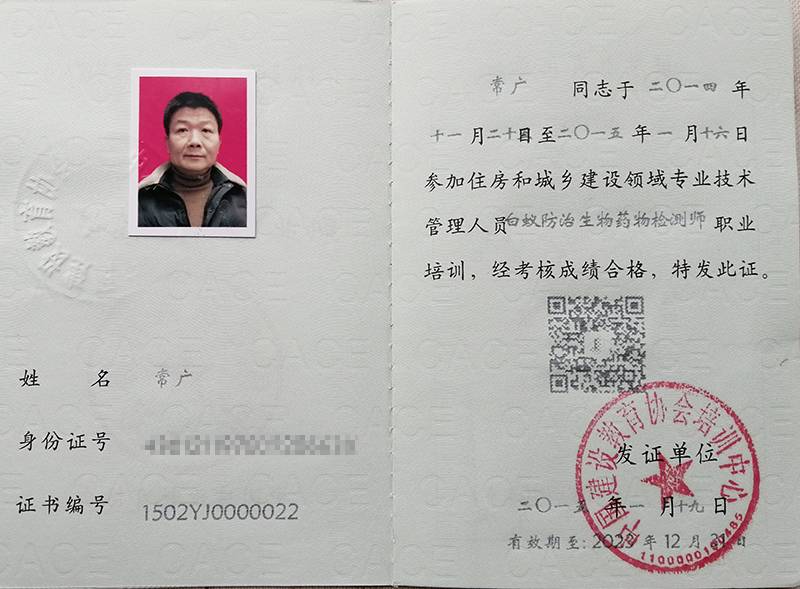 姓 名 常广
身份证号
证书编号 1502YJ0000022
常广 同志于 二〇一四 年
十一 月 二十 日至 二〇一五 年 一 月 十六 日
参加住房和城乡建设领域专业技术
管理人员 白蚁防治生物药物检测师 职业
培训，经考核成绩合格，特发此证。
中国建设教育协会培训中心
发证单位
二〇一五 年 一 月 十九 日
有效期至: 2023 年 12 月 31 日